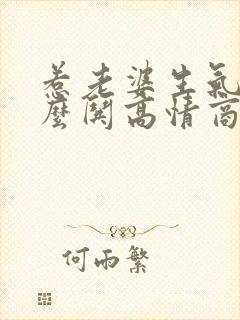 惹老婆生氣
麼関高情商
何雨繁